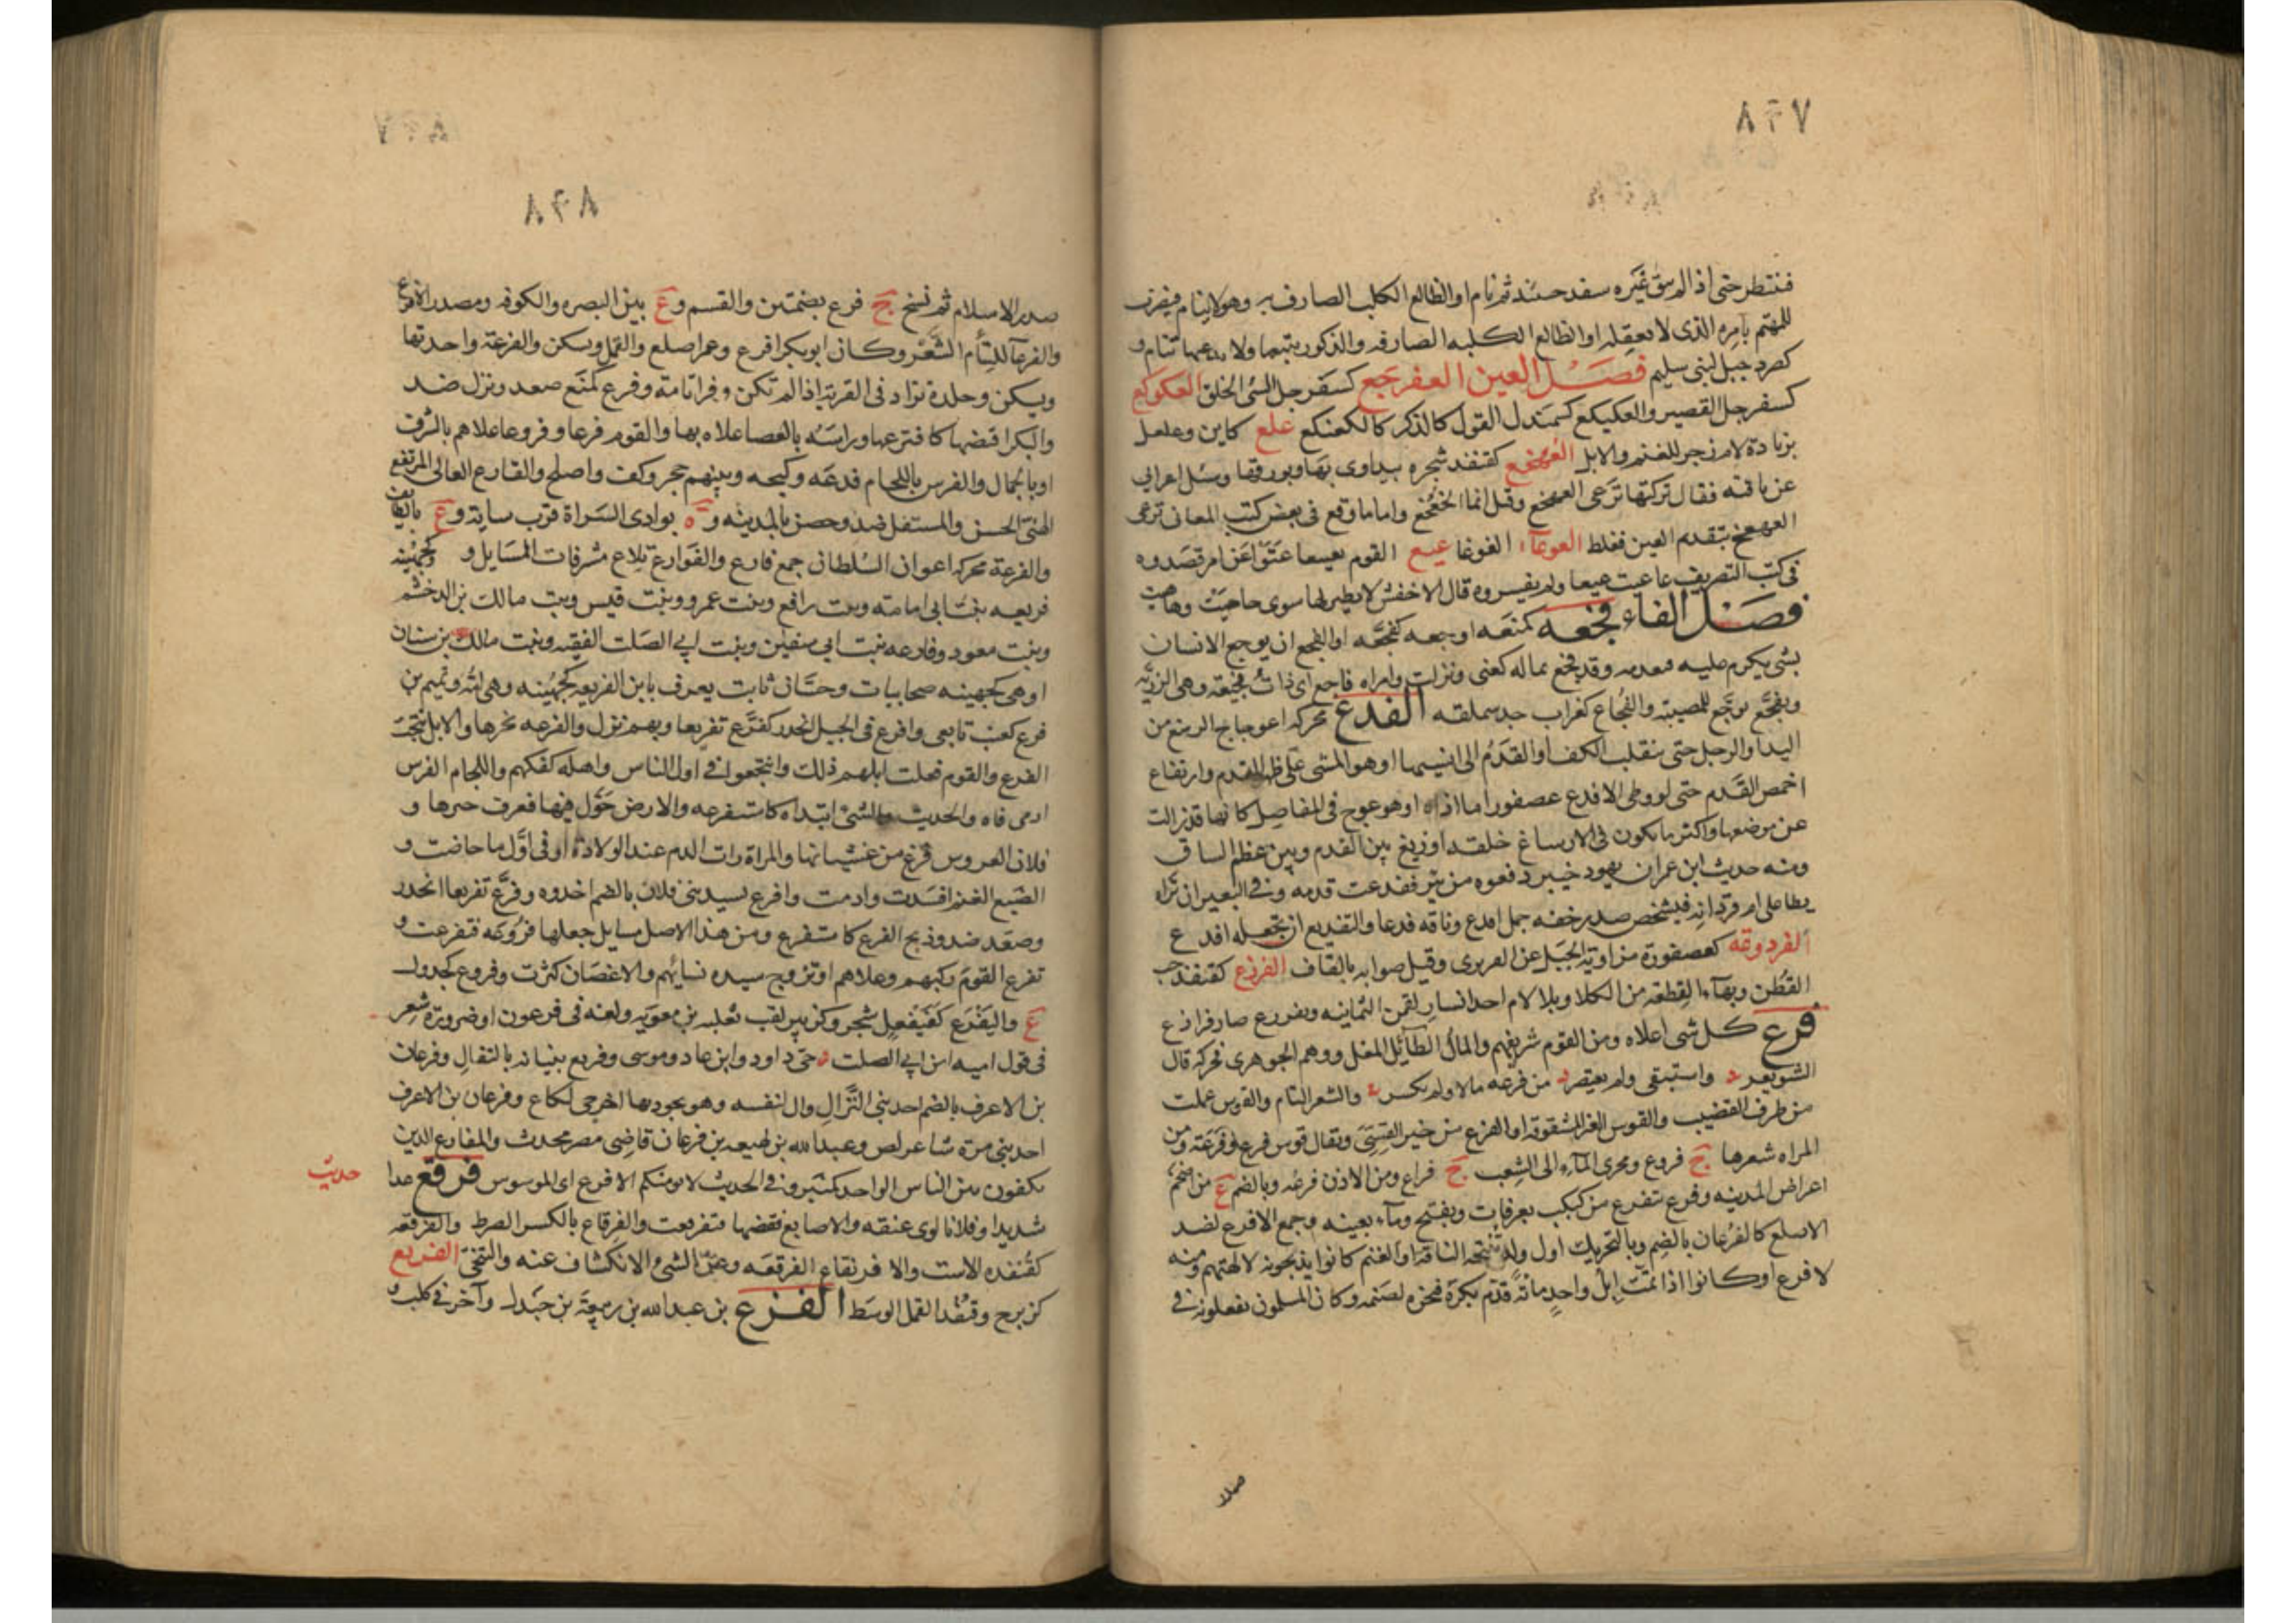 ٨٢٧
فننتظر حتى اذا لم يبق غيره سفد حينئذ ثم نام او الظالع الكلب الصارف به وهو لا ينام فيضرب
للمهتم بامره الذى لا يغفله او الظالع الكلبه الصارفه والذكور يتبعها ولا يدعها تنام و
كصرد جبل لبنى سليم فصل العين العفرجع كسفرجل السئ الخلق العكوكع
كسفرجل القصير والعكيكع كسمندل الغول الذكر كالكعنكع علع كاين وعلعل
بزيادة لام زجر للغنم والابل العهخع كقنفذ شجره يتداوى بها وبورقها وسئل اعرابى
عن ناقته فقال تركتها ترعى العهخع وقيل انما الخعخع واما ما وقع فى بعض كتب المعانى ترعى
العهعخ بتقدم العين فغلط العوعاء الغوغا عيع القوم تعييعا عتوا عن امر قصدوه
فى كتب التصريف عاعيت عيعا ولم يفسروه قال الاخفش لا نظير لها سوى حاحيت وهاهيت
فصل الفاء فجعه كمنعه اوجعه كفجعه او الفجع ان يوجع الانسان
بشئ يكرم عليه فيعدمه وقد فجع بماله كعنى ونزلت وامراه فاجع اى ذات فجيعة وهى الرزيه
وتفجع توجع للمصيبة والفجاع كغراب جد سملقه الفدع محركه اعوجاج الرسغ من
اليد او الرجل حتى ينقلب الكف او القدم الى انسيها او هو المشى على ظهر القدم وارتفاع
اخمص القدم حتى لو وطى الافدع عصفورا ما اذاه او هو عوج فى المفاصل كانها قد زالت
عن موضعها واكثر ما يكون فى الارساغ خلقه او زيغ بين القدم وبين عظم الساق
ومنه حديث ابن عمر ان يهود خيبر دفعوه من بيت ففدعت قدمه وفى البعير ان تراه
يطا على ام قردانه فيشخص صدر خفه جمل افدع وناقه فدعا والتفديع ان تجعله افدع
الفردوعة كعصفورة من اودية الجبل عن العزيزى وقيل صوابه بالقاف الفرذع كقنفذ حب
القطن وبهاء القطعة من الكلا وبلا لام احد انسار لقمن الثمانيه وتفرزع صار فرازع
فرع كل شى اعلاه ومن القوم شريفهم والمال الطائل المعد ووهم الجوهرى فحركه قال
الشويعر واستبقى ولم يعتصر من فرعه مالا ولم يكسر والشعر التام والقوس عملت
من طرف القضيب والقوس الغير المشقوقة او الفرع من خير القسى ويقال قوس فرع وفرعة ومن
المراه شعرها ج فروع ومجرى الماء الى الشعب ج فراع ومن الاذن فرعه وبالضم ع من اضخم
اعراض المدينه وفرع يتفرع من كبكب بعرفات ويفتح وماء بعينه وجمع الافرع لضد
الاصلع كالفرعان بالضم وبالتحريك اول ولد تنتجه الناقة او الغنم كانوا يذبحونه لالهتهم ومنه
لا فرع او كانوا اذا تمت ابل واحد مائة قدم بكرة فنحره لصنمه وكان المسلمون يفعلونه فى
صدر
٨٢٨
صدر الاسلام ثم نسخ ج فرع بضمتين والقسم و ع بين البصره والكوفه ومصدر الافرع
والفرعاء للتام الشعر وكان ابو بكر افرع وعمر اصلع والقمل ويسكن والفرعة واحدتها
ويسكن وجلدة تزاد فى القربة اذا لم تكن وفراتامة وفرع كمنع صعد ونزل ضد
والبكر اقتضها كافترعها وراسه بالعصا علاه بها والقوم فرعا وفروعا علاهم بالشرف
او بالجمال والفرس باللجام قدعه وكبحه وبينهم حجر وكف واصلح والفارع العالى المرتفع
الهيئ الحسن والمستفل ضد وحصن بالمدينه و ة بوادى السراة قرب ساية و ع بالطائف
والفرعة محركه اعوان السلطان جمع فارع والفوارع تلاع مشرفات المسايل و كجهينه
فريعه بنت ابى امامة وبنت رافع وبنت عمرو وبنت قيس وبنت مالك بن الدخشم
وبنت معوذ وفارعه بنت ابى سفين وبنت ابى الصلت الفقيه وبنت مالك بن سنان
او هى كجهينه صحابيات وحسان ثابت يعرف بابن الفريعه كجهينه وهى امه وتميم بن
فرع كعب تابعى وافرع فى الجبل انحدر كفرع تفريعا وبهم نزل والفرعه نحرها والابل نتجت
الفرع والقوم فعلت ابلهم ذلك وانتجعوا فى اول الناس واهله كفلهم واللجام الفرس
ادمى فاه والحديث والشئ ابتداه كاستفرعه والارض حول فيها فعرف خبرها و
فلان العروس فرغ من غشيانها والمراة رات الدم عند الولادة او فى اول ما حاضت و
الضبع الغنم افسدت وادمت وافرع لسيد بنى فلان بالضم اخذوه وفرع تفريعا انحدر
وصعد ضد وذبح الفرع كاستفرع ومن هذا الاصل مسايل جعلها فروعه فتفرعت و
تفرع القوم ركبهم وعلاهم او تزوج سيده نسائهم والاغصان كثرت وفروع كجدول
ع واليفرع كفيفعل شجر وكزبير لقب ثعلبه بن معويه ولغه فى فرعون او ضرورة شعر
فى قول اميه ابن ابى الصلت حى داود وابن عاد وموسى وفريع بنيانه بالثقال وفرعان
بن الاعرف بالضم احد بنى النزال وال لنفسه وهو يجود بها اخرجى لكاع وفرعان بن الاعرف
احد بنى مرة شاعر لص وعبد الله بن لهيعه بن فرعان قاضى مصر محدث والمفارع الذين
يكفون بين الناس الواحد كمنبر وفى الحديث لا يومنكم الافرع اى الموسوس فرقع عدا
حديث
شديدا وفلانا لوى عنقه والاصابع نقضها فتفرقعت والفرقاع بالكسر الضرط والفرقعه
كقنفذه الاست والافرنقاع الفرقعه وعن الشئ الانكشاف عنه والتنحى الفرنع
كزبرج وقنفذ القمل الوسط الفزع بن عبد الله بن ربيعة بن جندل وآخر فى كلب و